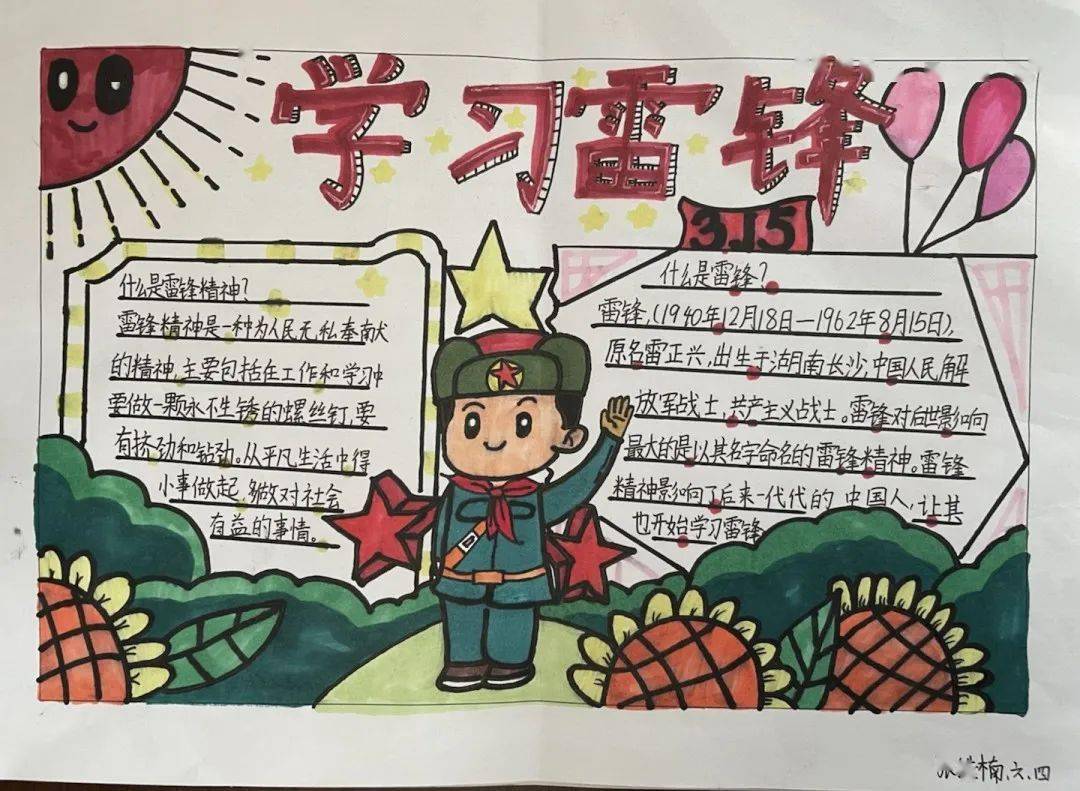 学习雷锋
3.15
什么是雷锋精神?
雷锋精神是一种为人民无私奉献
的精神,主要包括在工作和学习中
要做一颗永不生锈的螺丝钉,要
有挤劲和钻劲。从平凡生活中得
小事做起,多做对社会
有益的事情。
什么是雷锋?
雷锋,(1940年12月18日—1962年8月15日),
原名雷正兴,出生于湖南长沙,中国人民解
放军战士,共产主义战士。雷锋对后世影响
最大的是以其名字命名的雷锋精神。雷锋
精神影响了后来一代代的中国人,让其
也开始学习雷锋
楠.六.四